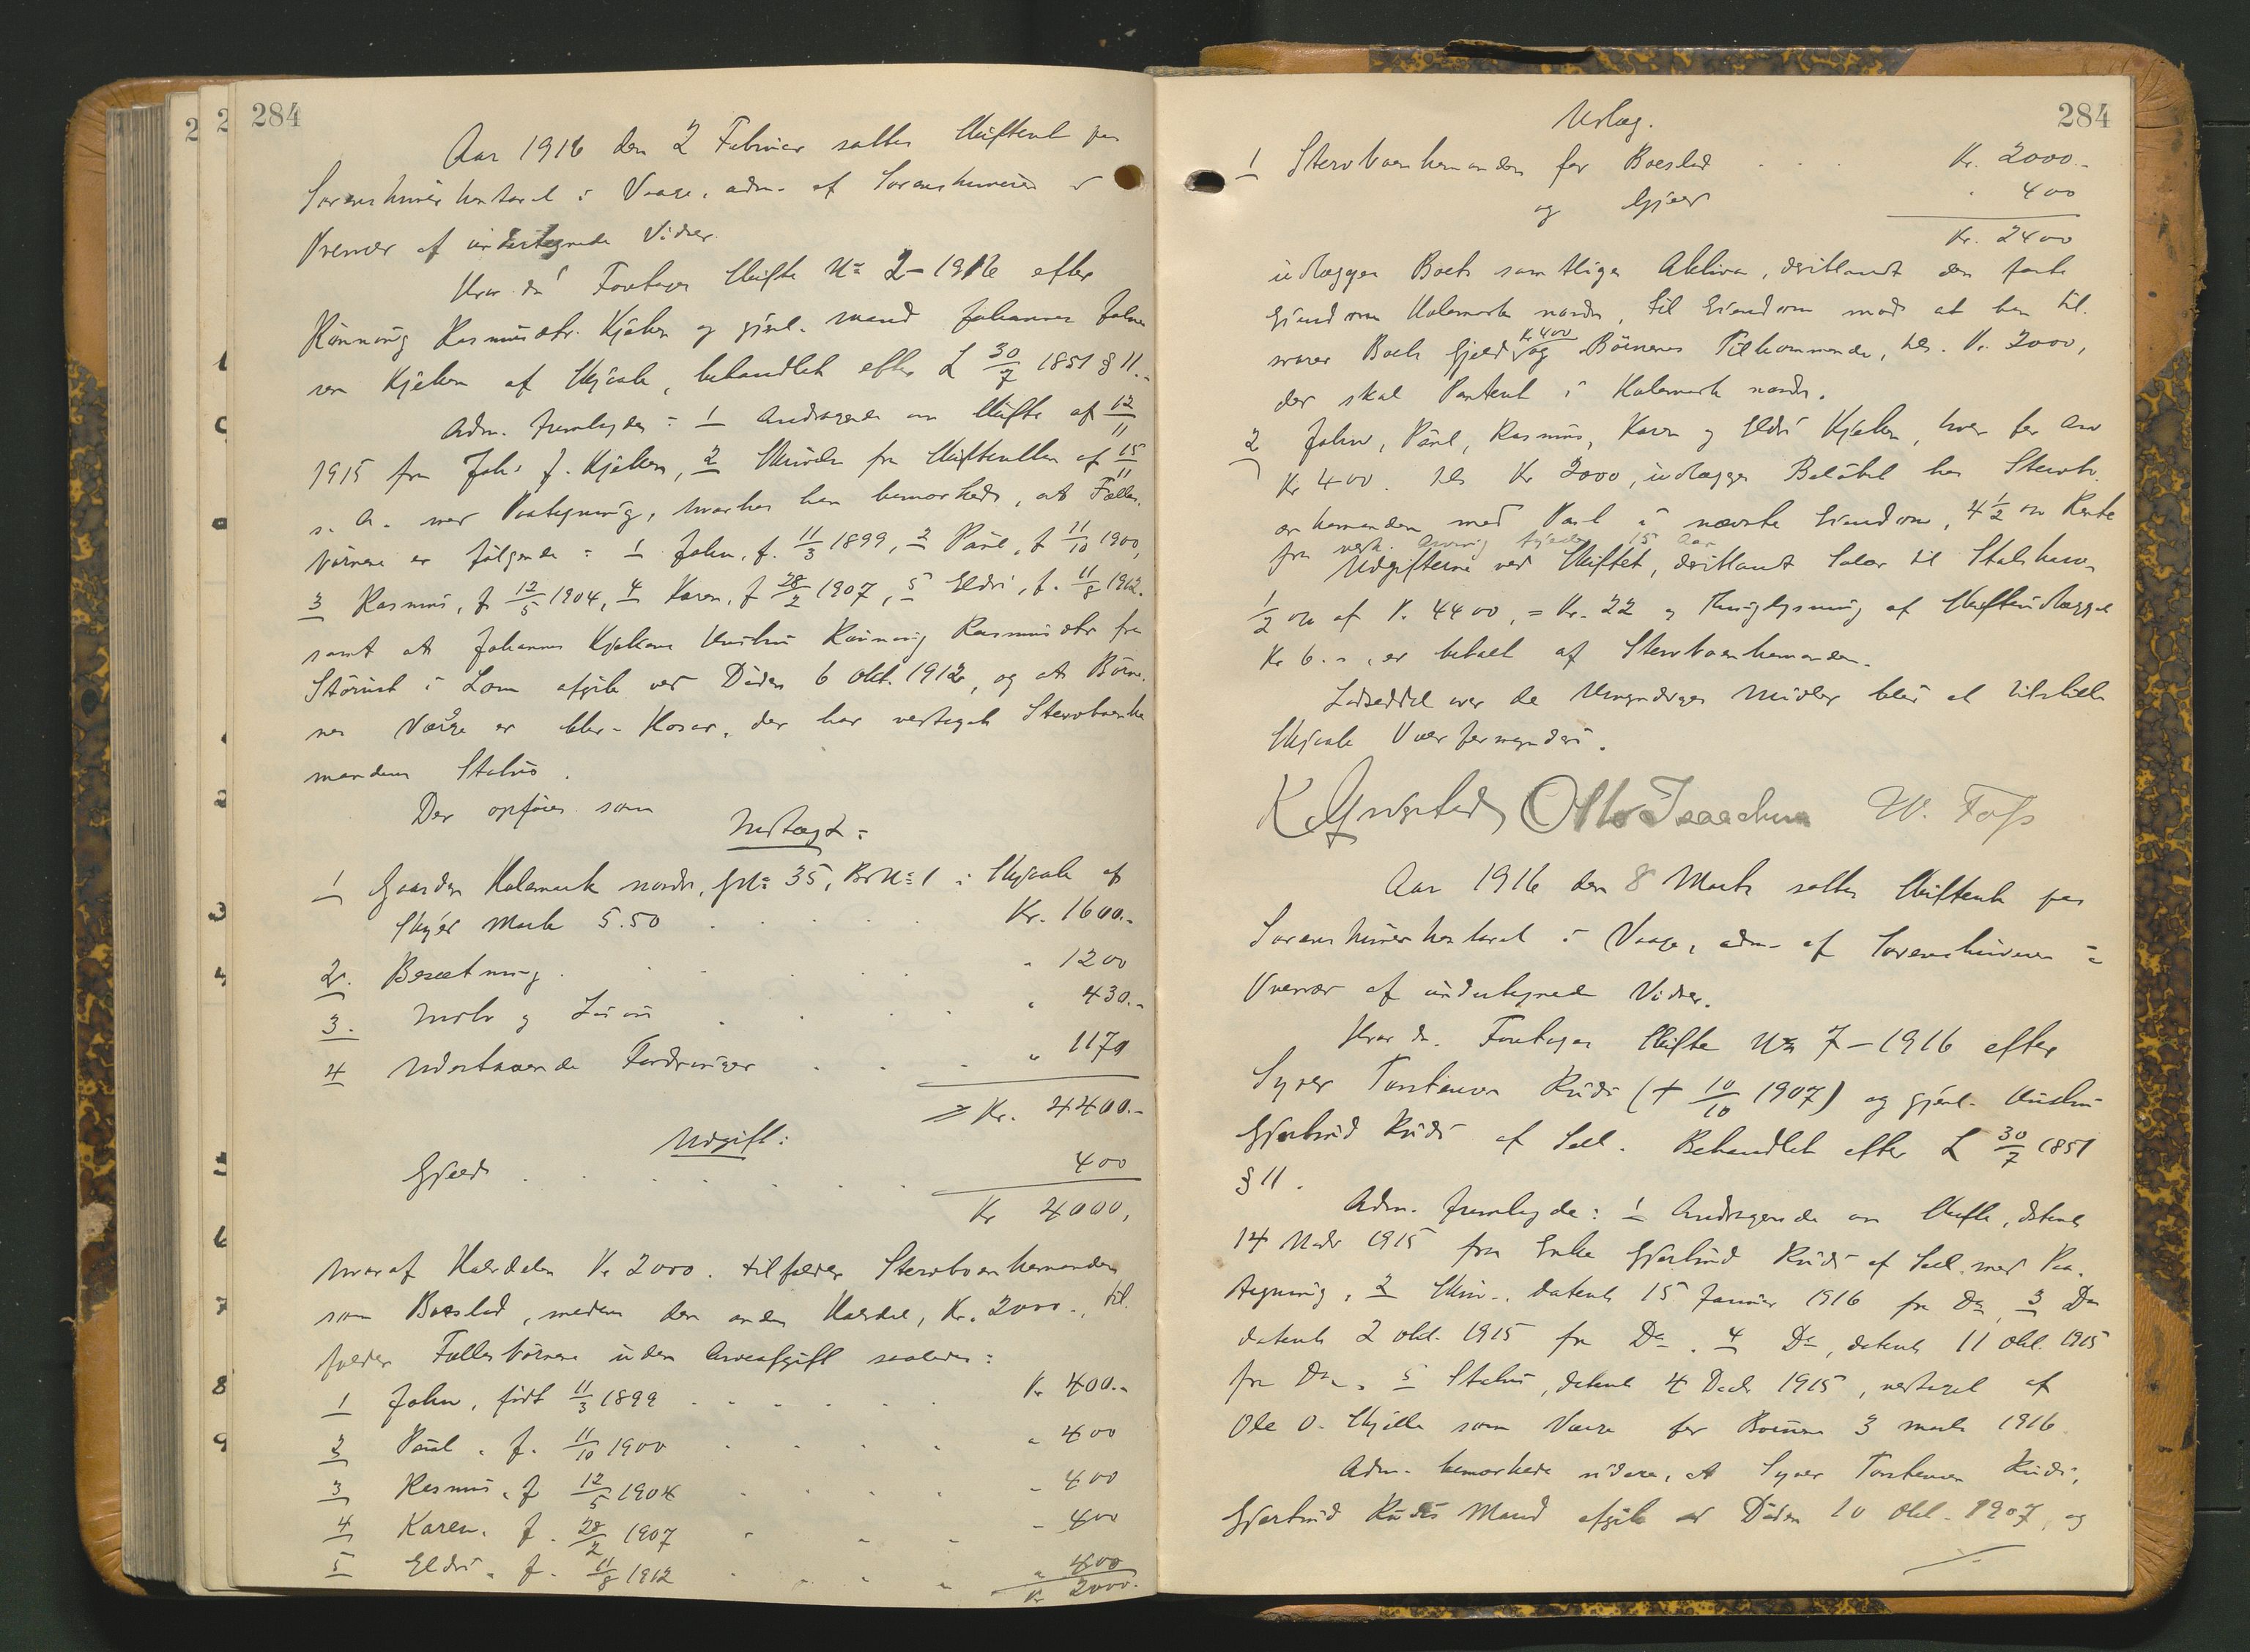 284
Aar 1916 den 2 Februar sattes Skifteret paa
Sorenskriverkontoret i Vaage, adm. af Sorenskriveren i
Overvær af undertegnede Vidner.
Hvor da! Foretoges Skifte No 2-1916 efter
Rønnaug Rasmusdtr. Kjøken og gjenl. Mand Johannes Johne
sen Kjøken af Skjaak, behandlet efter L 30/7 1851 § 11.-
Adm. fremlagdes: 1 Andragende om Skifte af 12/11
1915 fra Johs J. Kjøken, 2 Skrivelse fra Skifteretten af 15/11
s. A. med Paategning, hvorhos han bemærkede, at Fælles-
børnene er følgende: 1 John, f. 11/3 1899, 2 Paul, f 11/10 1900,
3 Rasmus, f 12/5 1904, 4 Karen, f 28/2 1907, 5 Eldri, f. 11/8 1912.
samt at Johannes Kjøkens Hustru Rønnaug Rasmusdtr fra
i Lom afgik ved Døden 6 Okt. 1912, og at Børne-
nes Værge er der har vedtaget Stervboenke
mandens Status.
Der opføres som
Indtægt:
1 Gaarden Kolemark nordre, GNo 35, BrNo 1 i Skjaak af
Skyld Mark 5.50 . . . Kr. 1600.-
2. Besætning . . . " 1200
3. Indbo og Løsøre . . . " 430.-
4 Udestaaende Fordringer . . . " 1170
= Kr. 4400.-
Udgift:
Gjæld . . . 400
Kr 4000,
hvoraf Halvdelen Kr 2000. tilfalder Stervboenkemanden
som Boeslod, medens den anden Halvdel, Kr. 2000-, til-
falder Fællesbørnene uden Arveafgift saaledes:
1 John, født 11/3 1899 . . . Kr 400.-
2 Paul. f. 11/10 1900 . . . " 400
3 Rasmus. f 12/5 1904 . . . " 400
4 Karen. f. 28/2 1907 . . . " 400
5 Eldri. f. 11/8 1912 . . . " 400
Kr 2000.
284
Udlæg.
1 Stervboenkemanden for Boeslod . . . Kr. 2000.-
og Gjæld " 400
Kr. 2400
udlægges Boets samtlige Aktiva, deriblandt den faste
Eiendom Kolemark nordre, til Eiendom mod at han til-
svarer Boets Gjæld Kr 400 og Børnenes Tilkommende, tils. Kr. 2000,
der skal Panteret i Kolemark nordre.
2 John, Paul, Rasmus, Karen og Eldri Kjøken, hver for Arv
Kr 400. tils Kr 2000, udlægges Beløbet hos Stervbo-
enkemanden med Pant i nævnte Eiendom, 4 1/2 % Rente
fra 15 Aar
Udgifterne ved Skiftet, deriblandt Salær til Statskassen
1/2 % af Kr. 4400, = Kr. 22 og Thinglysning af Skifteudlægget
Kr 6.-, er betalt af Stervboenkemanden.
Lodseddel over de Umyndiges Midler blir at tilstille
Skjaak Overformynderi.
K Otto Isaachsen W. Foss
Aar 1916 den 8 Marts sattes Skifteret paa
Sorenskriverkontoret i Vaage, adm. af Sorenskriveren i
Overvær af undertegnede Vidner.
Hvor da. Foretoges Skifte No 7-1916 efter
Syver Torstensen Rudi († 10/10 1907) og gjenl. Hustru
Gjertrud Rudi af Sell. Behandlet efter L 30/7 1851
§ 11.
Adm. fremlagde: 1 Andragende om Skifte, dateret
14 Novbr 1915 fra Enke Gjertrud Rudi af Sell med Paa-
tegning, 2 Skriv. dateret 15 Januar 1916 fra Do, 3 Do
dateret 2 Okt. 1915 fra Do. 4 Do, dateret 11 Okt. 1915
fra Do. 5 Status, dateret 4 Decbr 1915, vedtaget af
Ole O. Skjelle som Værge for Børnene 3 marts 1916.
Adm. bemærkede videre, at Syver Torstensen Rudi,
Gjertrud Rudis Mand afgik ved Døden 10 Okt. 1907, og